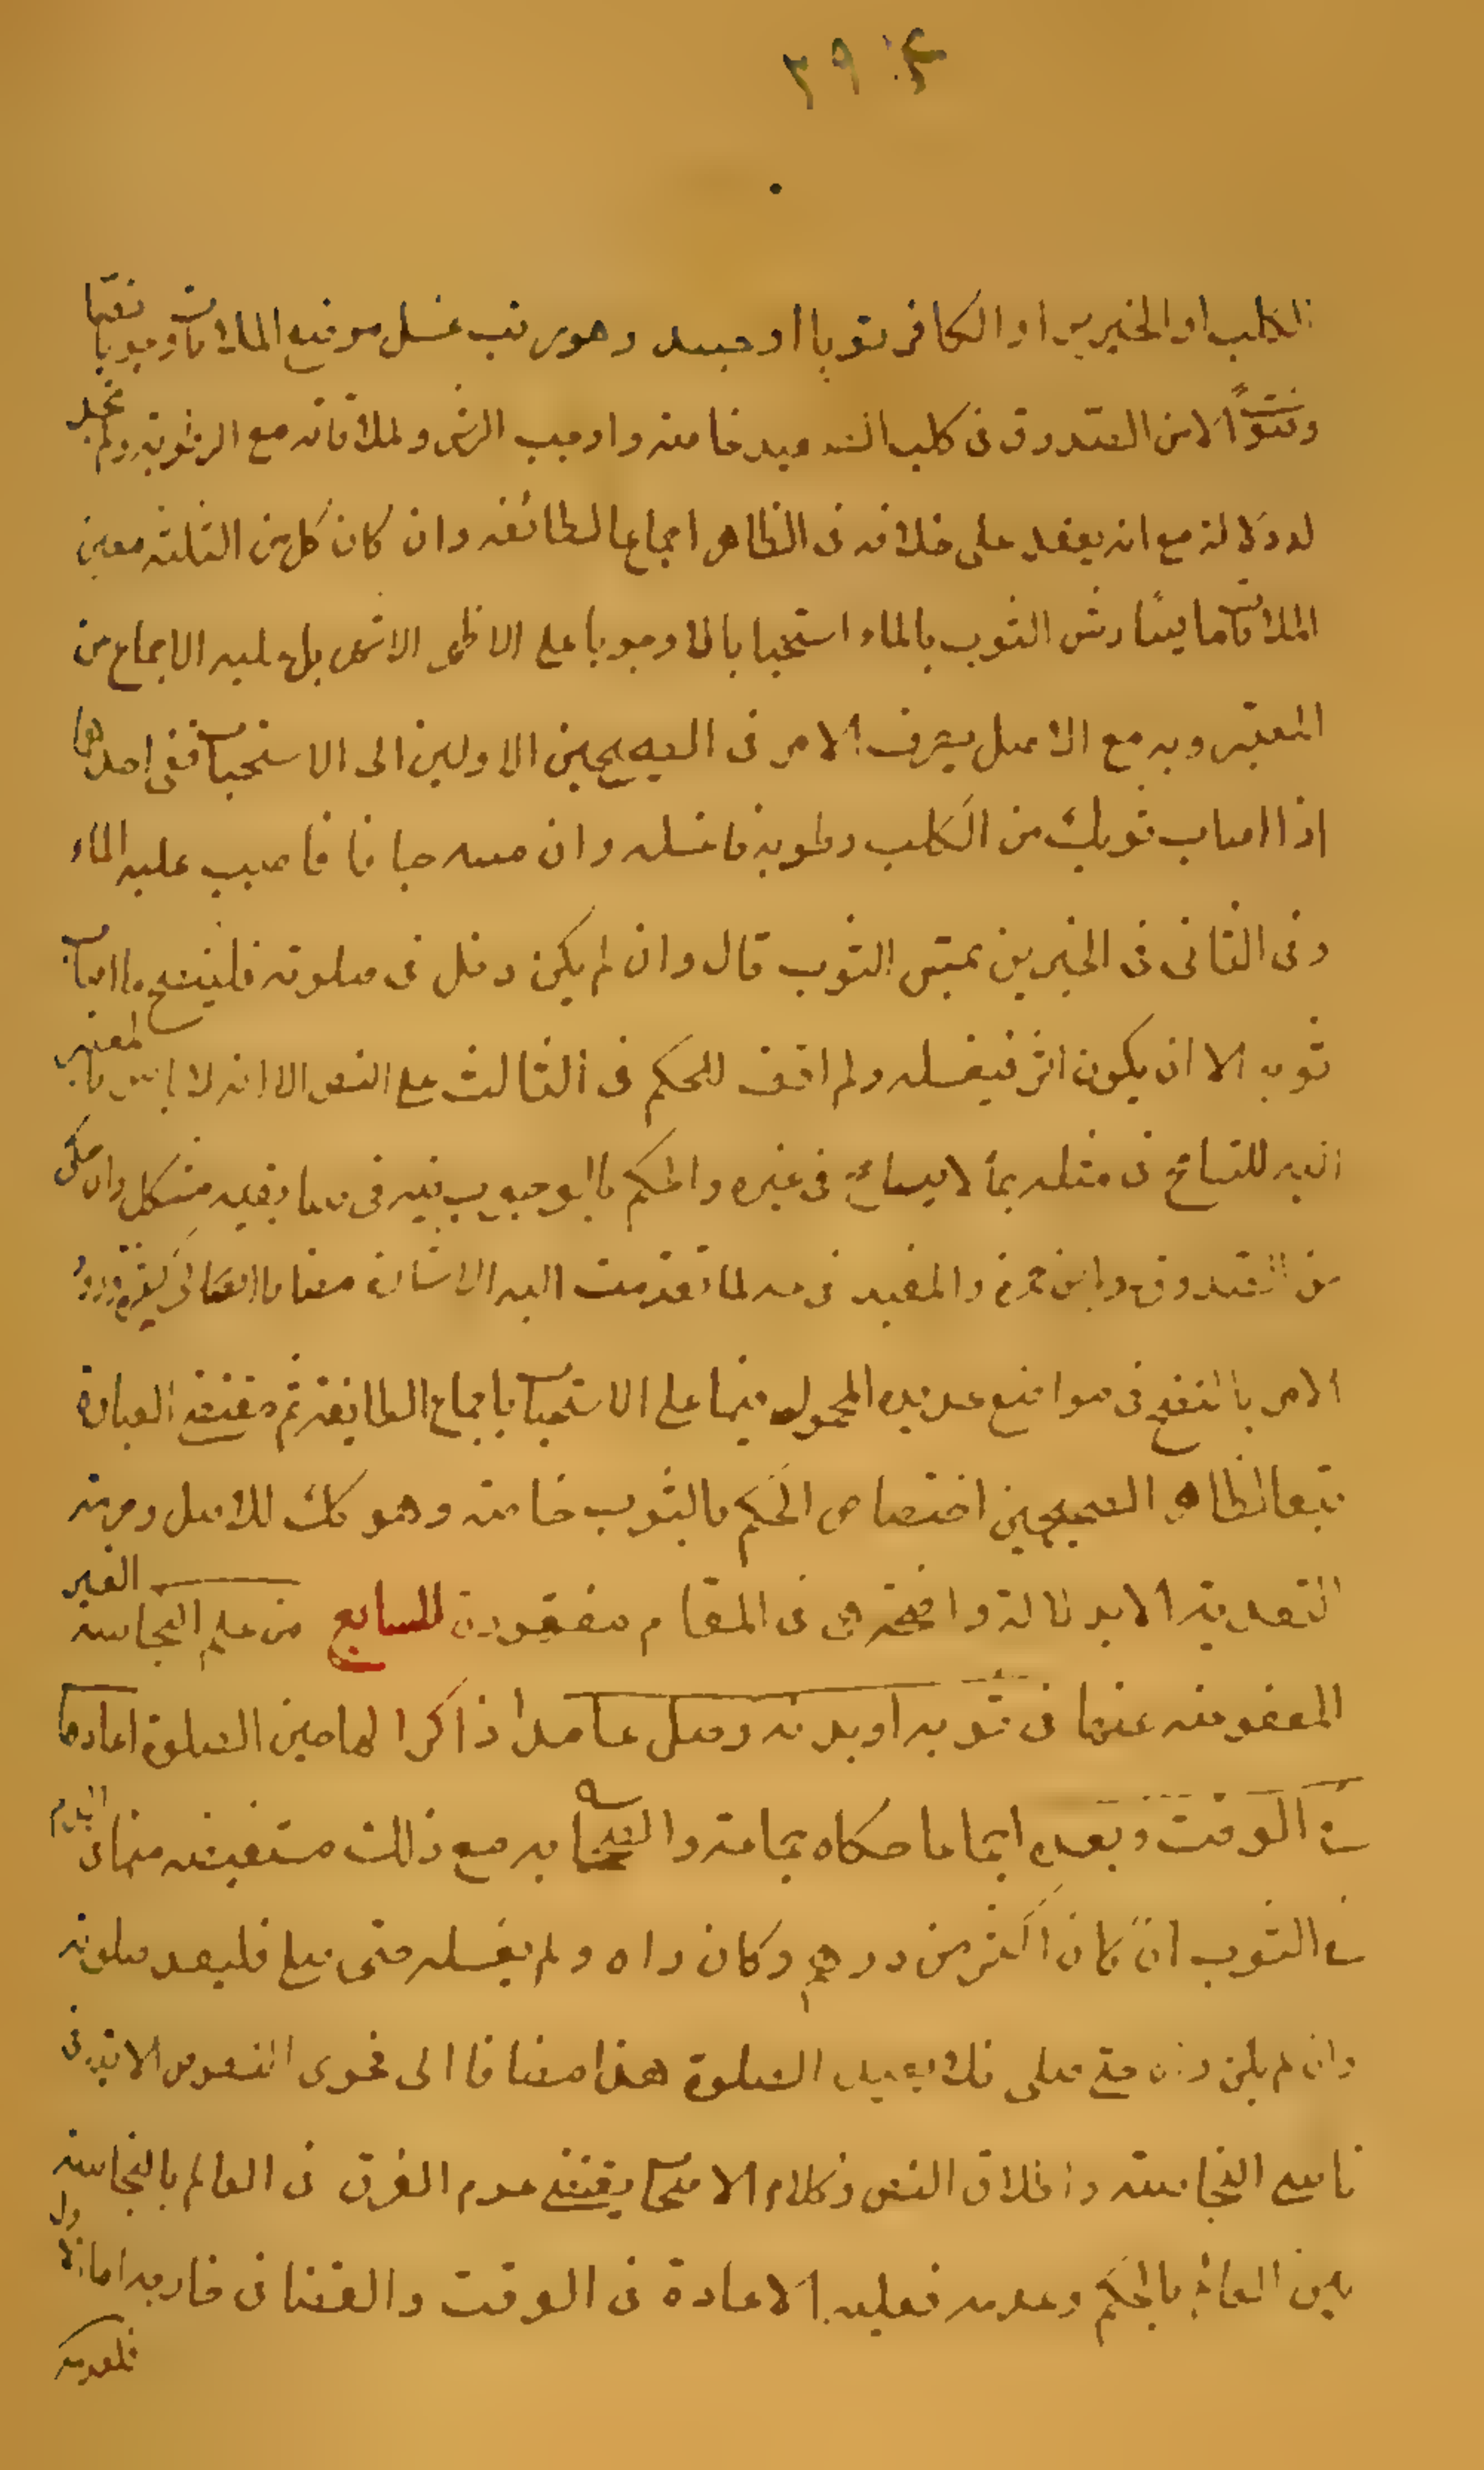 الكلب او الخنزير او الكافر ثوبا او جسد وهو رتب غسل موضع الملاقات وجوبا نصا
وفتوًا الا من الصدوق فى كلب الصيد خاصة واوجب الرش ولملاقاته مع الرطوبة ولم نجد
له دلالة مع انه يعقد على خلافه فى الظاهر اجماع الطائفة وان كان كل من الثلثة معين
الملاقات يابسًا رش الثوب بالماء استحبابا لا وجوبا على الاظهر الاشهر بل عليه الاجماع من
المعتبر وبه مع الاصل يصرف الامر فى الصحيحين الاولين الى الاستحباب ففى احدهما
اذا اصاب ثوبك من الكلب رطوبة فاغسله وان مسه جافا فاصبب عليه الماء
وفى الثانى فى الخنزير يمس الثوب قال وان لم يكن دخل فى صلوته فلينضح ما اصاب
ثوبه الا ان يكون اثر فيغسله ولم اقف للحكم فى الثالث على النص الا انه لا باس بالمصير
اليه للتسامح فى مثله بما لا يسامح فى غيره والحكم بالوجوب فيه فى ما يقيه مشكل وان حكى
من الصدوق وابن حمزة والمفيد فى مه لما تقدمت اليه الاشارة مضافا الى كثرة ورود
الامر بالنضح فى مواضع عديدة المحمول فيها على الاستحباب باجماع الطايفة ثم مقتضى العبارة
تبعا لظاهر الصحيحين اختصاص الحكم بالثوب خاصة وهو كك للاصل وحرمة
التعدية الا بدلالة واضحة هى فى المقام مفقودة للسابع من علم النجاسة الغير
المعفوة عنها فى ثوبه او بدنه وصلى عامدا ذاكرا لها حين الصلوة اعادها
فى الوقت وبعده اجماعا حكاه جماعة والصحاح به مع ذلك مستفيضة منها فى الدم
فى الثوب ان كان اكثر من درهم وكان راه ولم يغسله حتى صلى فليعد صلوته
وان لم يكن راه حتى صلى فلا يعيد الصلوة هذا مضافا الى فحوى النصوص الاتية فى
ناسى النجاسة واطلاق النص وكلام الاصحاب يقتضى عدم الفرق فى العالم بالنجاسة
بين العالم بالحكم وعدمه فعليه الاعادة فى الوقت والقضا فى خارجه اما الاول
فلعدم